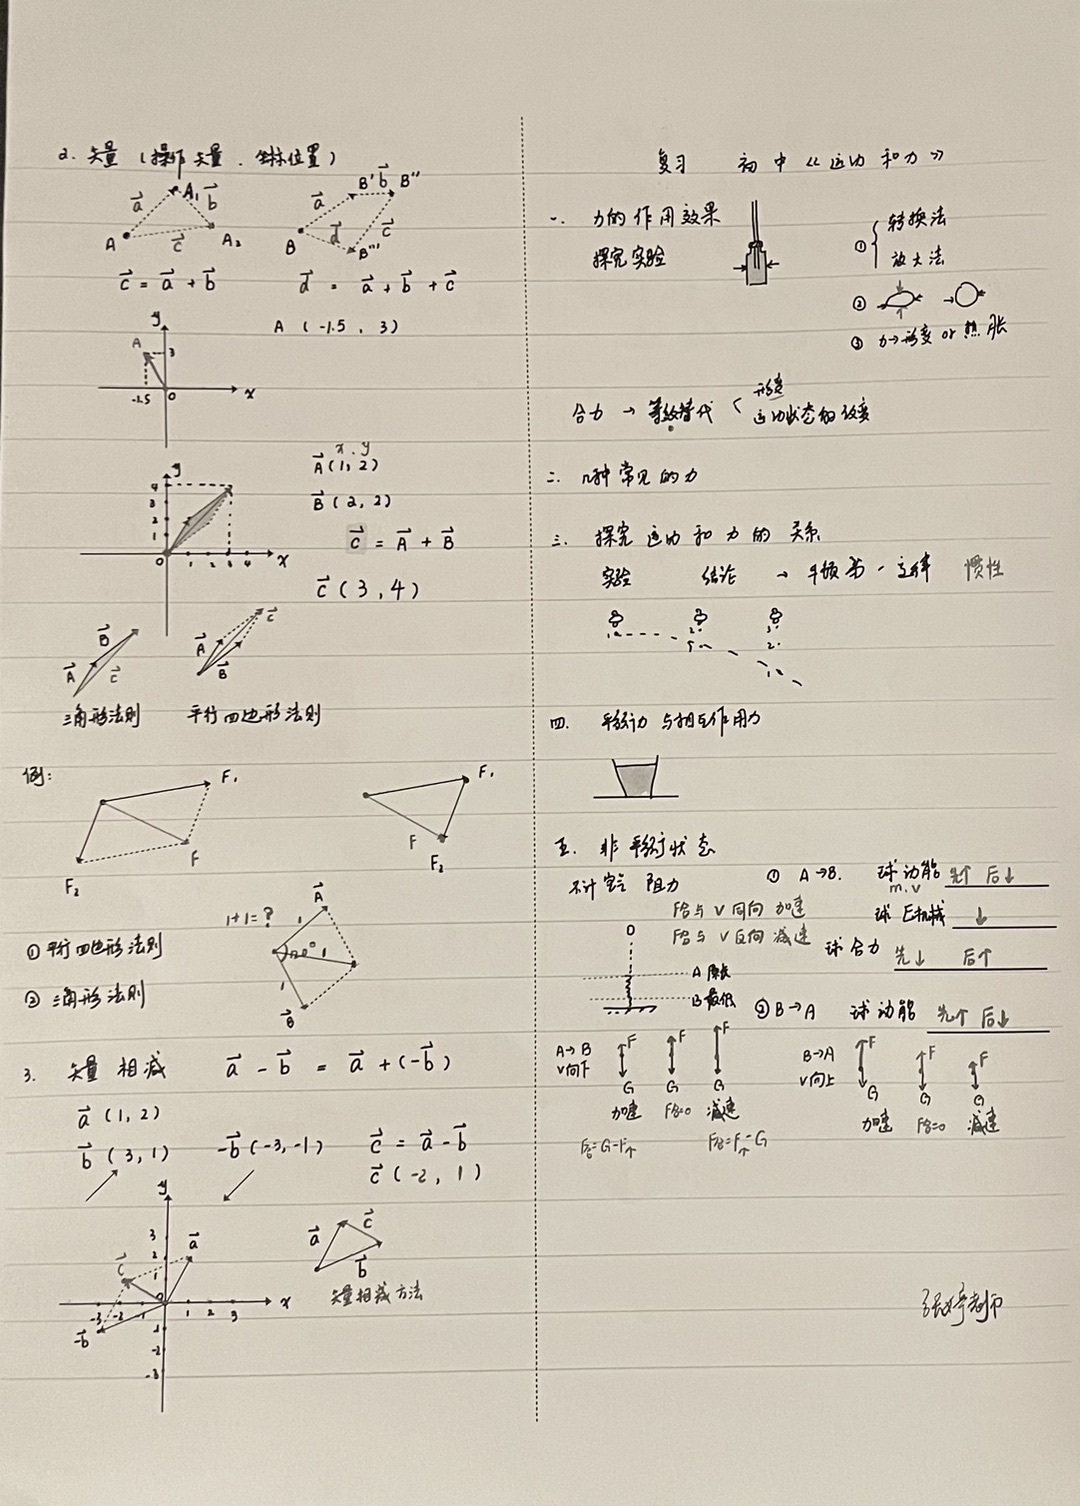 2. 矢量 (操作矢量. 坐标位置)
a⃗ A₁ b⃗
A c⃗ A₂
c⃗ = a⃗ + b⃗
B' b⃗ B''
a⃗ c⃗
B d⃗ B'''
d⃗ = a⃗ + b⃗ + c⃗
A (-1.5, 3)
y
A 3
-1.5 O x
x. y
A⃗ (1, 2)
B⃗ (2, 2)
c⃗ = A⃗ + B⃗
c⃗ (3, 4)
y
4
3
2
1
O 1 2 3 4 x
B⃗
A⃗ c⃗
三角形法则
c⃗
A⃗
B⃗
平行四边形法则
例:
F₁
F
F₂
F₁
F
F₂
1+1=?
① 平行四边形法则
② 三角形法则
A⃗
1
120° 1
1
B⃗
3. 矢量相减 a⃗ - b⃗ = a⃗ + (-b⃗)
a⃗ (1, 2)
b⃗ (3, 1) -b⃗ (-3, -1) c⃗ = a⃗ - b⃗
c⃗ (-2, 1)
y
3
2 a⃗
c⃗ 1
-3 -2 -1 O 1 2 3 x
-b⃗ -1
-2
-3
a⃗ c⃗
b⃗
矢量相减方法
复习 初中《运动和力》
一. 力的作用效果
探究实验
① 转换法
放大法
②
③ 力→形变 or 热胀
合力 → 等效替代 < 形变
运动状态的改变
二. 几种常见的力
三. 探究运动和力的关系
实验 结论 → 牛顿第一定律 惯性
四. 平衡力与相互作用力
五. 非平衡状态
不计空气阻力
F合与V同向 加速
F合与V反向 减速
A 原长
B 最低
① A→B. 球动能 先↑ 后↓
m.v
球 E机械 ↓
球合力 先↓ 后↑
② B→A 球动能 先↑ 后↓
A→B
V向下
F F F
G G G
加速 F合=0 减速
F合=G-F↑ F合=F↑-G
B→A
V向上
F F F
G G G
加速 F合=0 减速
老师